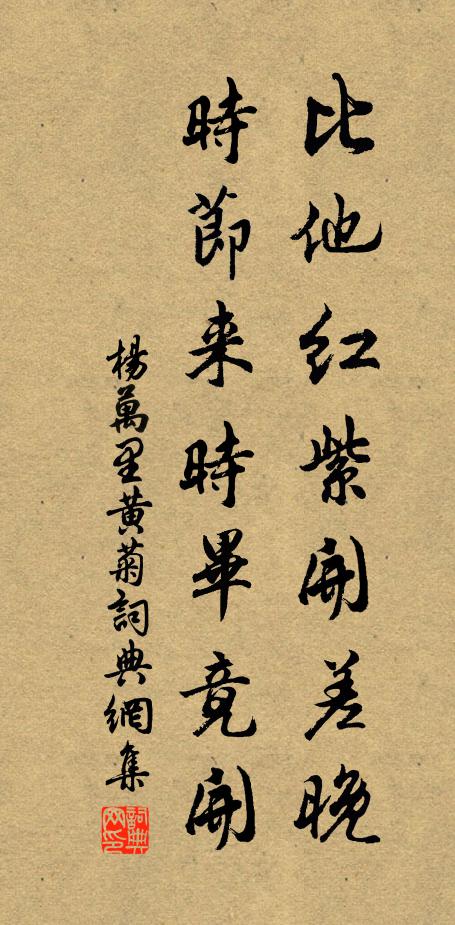 比他红紫開差晚
時節来時畢竟開
楊萬里黄菊詞典網集
詞典网印